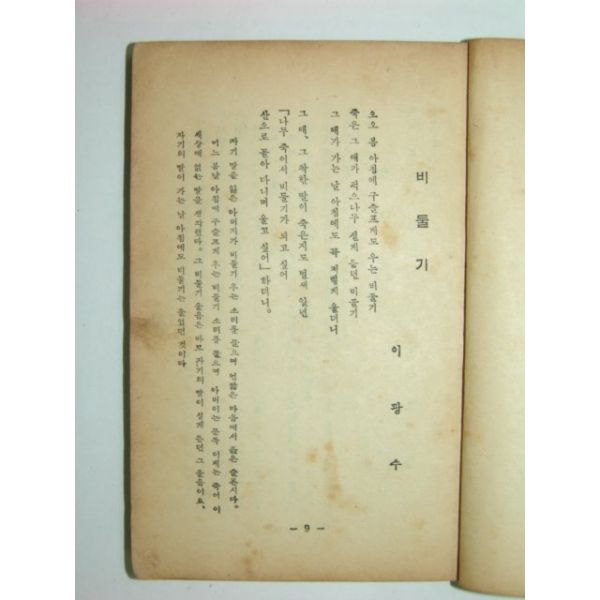 비둘기
이광수
오오 봄 아침에 구슬프게도 우는 비둘기
죽은 그 애가 퍽으나도 설게 듣던 비둘기
그 애가 가는 날 아침에도 꼭 저렇게 울더니
그 애, 그 착한 딸이 죽은지도 벌써 일년
「나두 죽어서 비둘기가 되고 싶어
산으로 돌아 다니며 울고 싶어」 하더니.
자기 딸을 잃은 아버지가 비둘기 우는 소리를 들으며 언짢은 마음에서 읊은 슬픈 시다.
어느 봄날 아침에 구슬프게 우는 비둘기 소리를 들으며 아버지는 문득 이제는 죽어 이
세상에 없는 딸을 생각한다. 그 비둘기 울음은 바로 자기의 딸이 설게 듣던 그 울음이요,
자기의 딸이 가는 날 아침에도 비둘기는 울었던 것이다
— 9 —